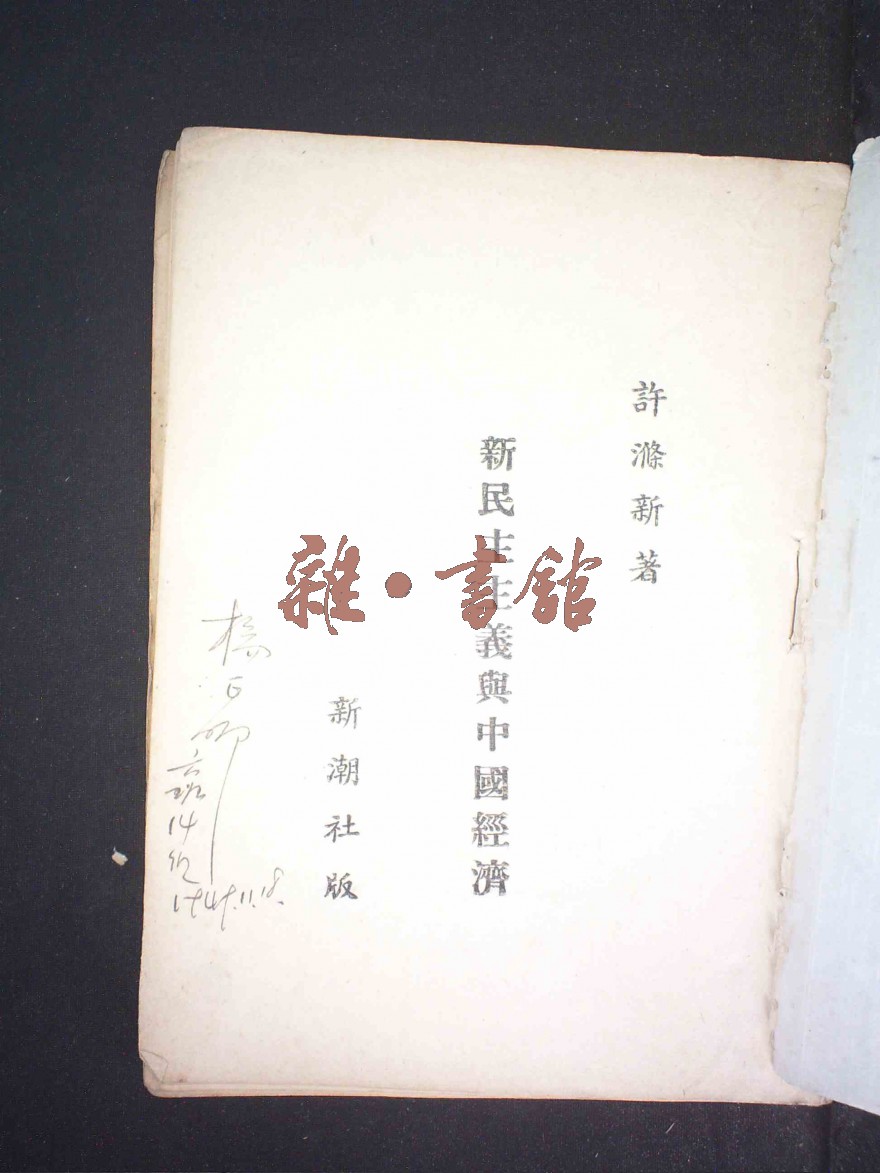 許滌新著
新民主主義與中國經濟
新潮社版
雜·書館
14
11.18.